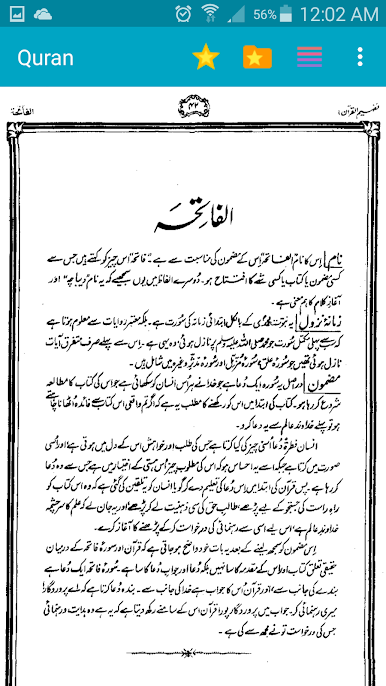 56% 12:02 AM
Quran
الفاتحۃ ۴۲ تفہیم القرآن ۱
الفاتحہ
نام اِس کا نام "الفاتحہ" اِس کے مضمون کی مناسبت سے ہے۔ "فاتحہ" اس چیز کو کہتے ہیں جس سے
کسی مضمون یا کتاب یا کسی شئے کا افتتاح ہو۔ دُوسرے الفاظ میں یوں سمجھیے کہ یہ نام "دیباچہ" اور
آغازِ کلام کا ہم معنی ہے۔
زمانۂ نزول یہ نبوّتِ محمدی کے بالکل ابتدائی زمانہ کی سُورت ہے۔ بلکہ معتبر روایات سے معلوم ہوتا ہے
کہ سب سے پہلی مکمل سُورت جو محمد صلی اللہ علیہ وسلم پر نازل ہوئی وہ یہی ہے۔ اس سے پہلے صرف متفرق آیات
نازل ہوئی تھیں جو سُورۂ علق، سُورۂ مُزّمّل اور سُورۂ مُدّثّر وغیرہ میں شامل ہیں۔
مضمون دراصل یہ سُورہ ایک دُعا ہے جو خدا نے ہر اُس انسان کو سکھائی ہے جو اس کی کتاب کا مطالعہ
شروع کر رہا ہو۔ کتاب کی ابتدا میں اس کو رکھنے کا مطلب یہ ہے کہ اگر تم واقعی اس کتاب سے فائدہ اُٹھانا چاہتے
ہو تو پہلے خداوندِ عالم سے یہ دعا کرو۔
انسان فطرۃً دُعا اُسی چیز کی کیا کرتا ہے جس کی طلب اور خواہش اس کے دل میں ہوتی ہے، اور اسی
صورت میں کرتا ہے جبکہ اسے یہ احساس ہو کہ اس کی مطلوب چیز اُس ہستی کے اختیار میں ہے جس سے وہ دُعا
کر رہا ہے۔ پس قرآن کی ابتدا میں اِس دُعا کی تعلیم دے کر گویا انسان کو یہ تلقین کی گئی ہے کہ وہ اس کتاب کو
راہِ راست کی جستجو کے لیے پڑھے، طالبِ حق کی سی ذہنیت لے کر پڑھے اور یہ جان لے کہ علم کا سرچشمہ
خداوندِ عالم ہے، اس لیے اسی سے رہنمائی کی درخواست کر کے پڑھنے کا آغاز کرے۔
اِس مضمون کو سمجھ لینے کے بعد یہ بات خود واضح ہو جاتی ہے کہ قرآن اور سورۂ فاتحہ کے درمیان
حقیقی تعلق کتاب اور اس کے مقدمہ کا سا نہیں بلکہ دُعا اور جوابِ دُعا کا سا ہے۔ سُورۂ فاتحہ ایک دُعا ہے
بندے کی جانب سے، اور قرآن اس کا جواب ہے خدا کی جانب سے۔ بندہ دُعا کرتا ہے کہ اے پروردگار!
میری رہنمائی کر۔ جواب میں پروردگار پورا قرآن اس کے سامنے رکھ دیتا ہے کہ یہ ہے وہ ہدایت و رہنمائی
جس کی درخواست تو نے مجھ سے کی ہے۔